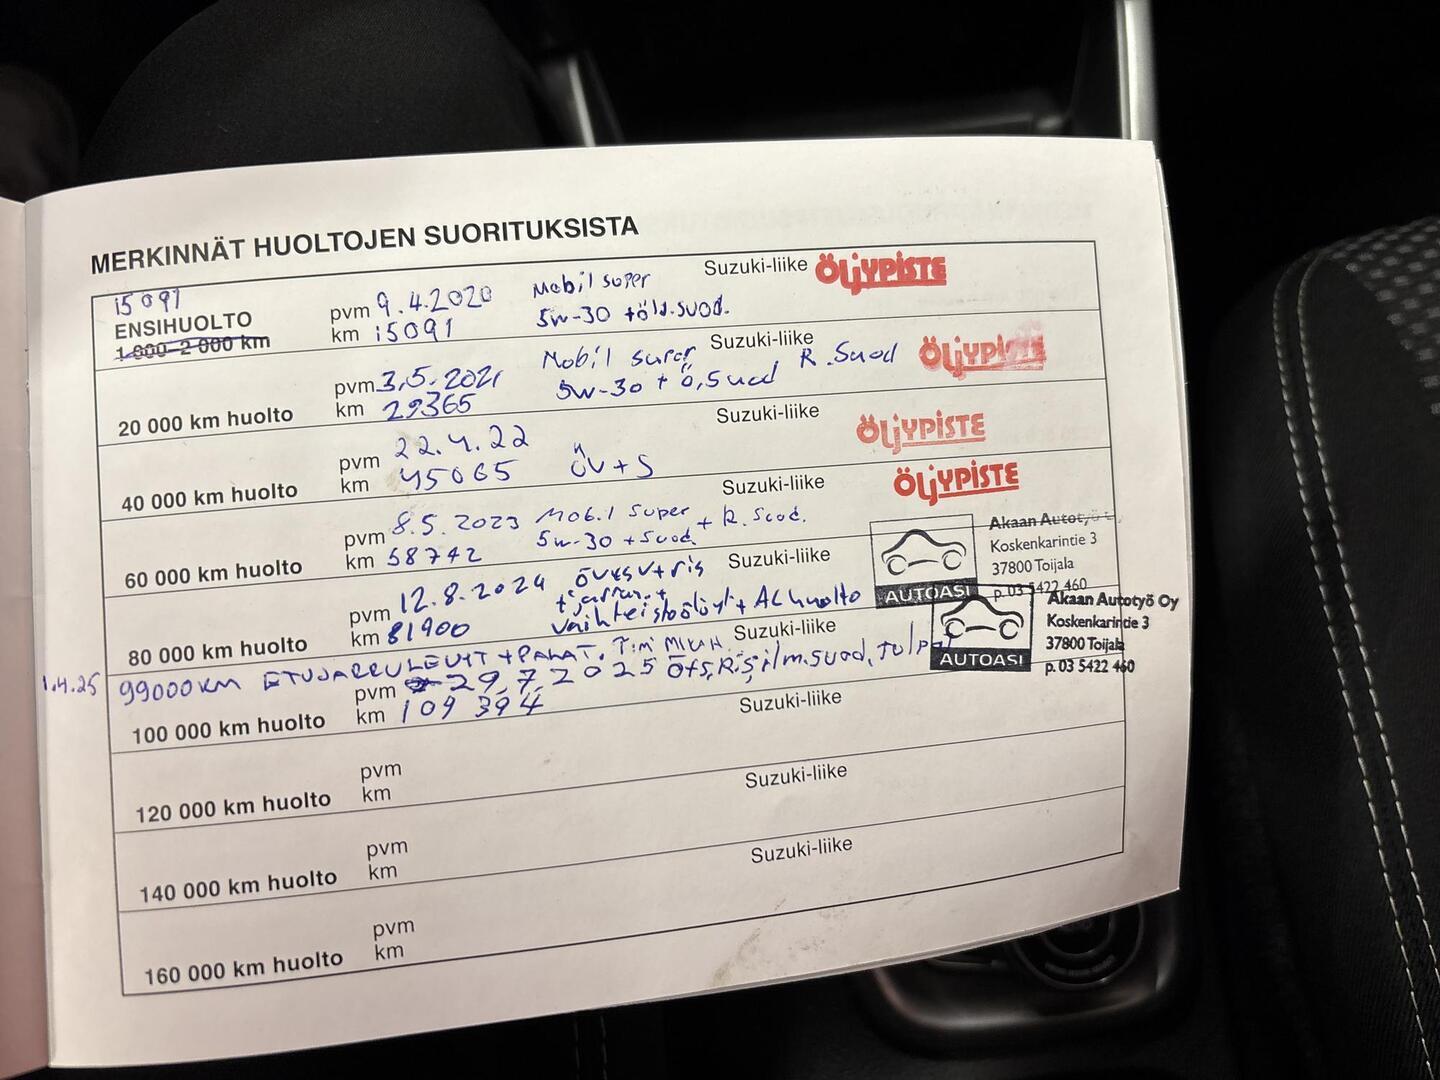 MERKINNÄT HUOLTOJEN SUORITUKSISTA
15091
ENSIHUOLTO
1 000-2 000 km
pvm 9.4.2020
km 15091
Mobil super
5w-30 +öld.suod.
Suzuki-liike ÖLJYPISTE
20 000 km huolto
pvm 3.5.2021
km 29365
Mobil super
5w-30 + ö,Suod R.Suod
Suzuki-liike ÖLJYPISTE
40 000 km huolto
pvm 22.4.22
km 45065 ÖV+S
Suzuki-liike ÖLJYPISTE
60 000 km huolto
pvm 8.5.2023
km 58742
Mobil super
5w-30 +suod. + R.Suod.
Suzuki-liike ÖLJYPISTE
80 000 km huolto
pvm 12.8.2024
km 81900
vaihteistoöljyt + AC huolto
Suzuki-liike
AUTOASI
Akaan Autotyö
Koskenkarintie 3
37800 Toijala
p. 03 5422 460
1.4.25 99000KM ETUJARRULEVYT + PALAT.
100 000 km huolto
pvm 29.7.2025
km 109 394
Suzuki-liike
AUTOASI
Akaan Autotyö Oy
Koskenkarintie 3
37800 Toijala
p. 03 5422 460
Suzuki-liike
120 000 km huolto
pvm
km
Suzuki-liike
140 000 km huolto
pvm
km
Suzuki-liike
160 000 km huolto
pvm
km